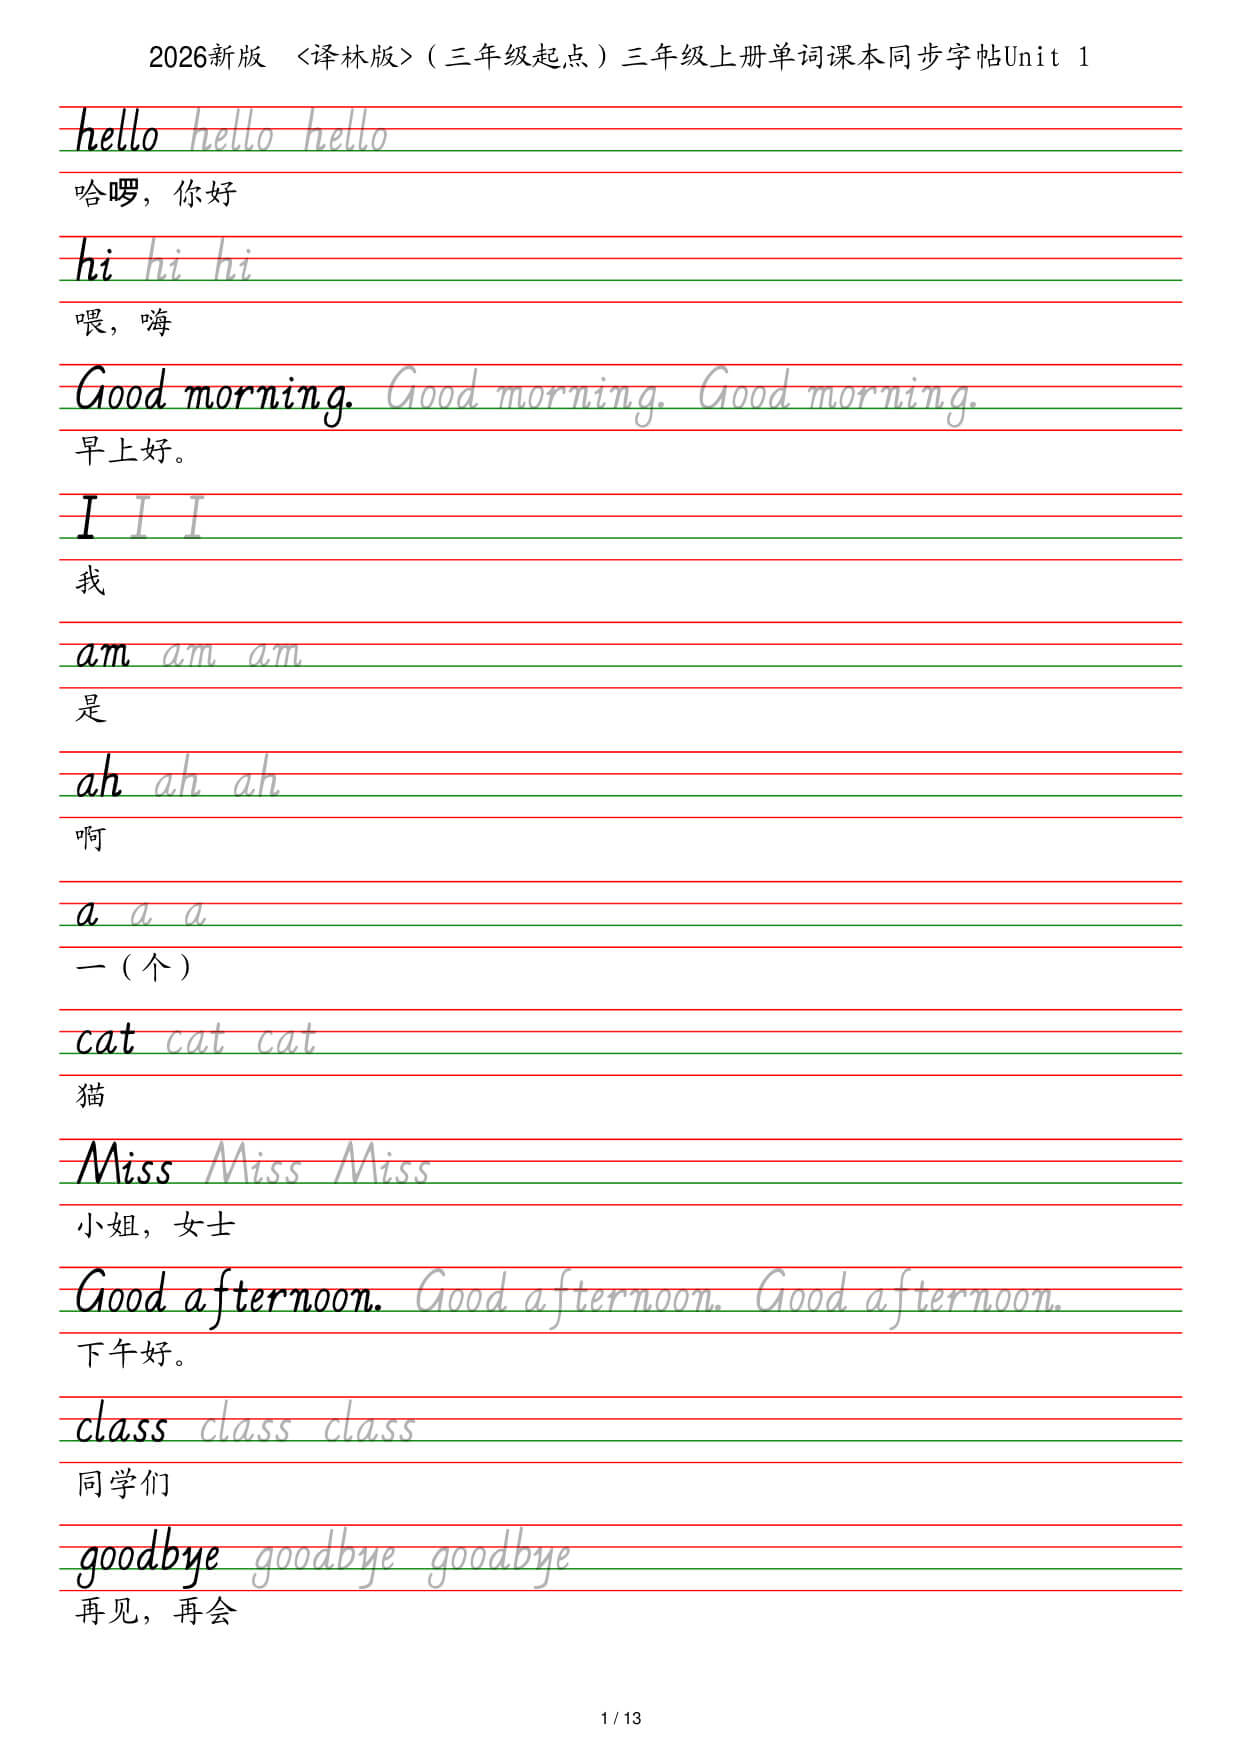 2026新版 <译林版>（三年级起点）三年级上册单词课本同步字帖Unit 1
hello hello hello
哈啰，你好
hi hi hi
喂，嗨
Good morning. Good morning. Good morning.
早上好。
I I I
我
am am am
是
ah ah ah
啊
a a a
一（个）
cat cat cat
猫
Miss Miss Miss
小姐，女士
Good afternoon. Good afternoon. Good afternoon.
下午好。
class class class
同学们
goodbye goodbye goodbye
再见，再会
1 / 13